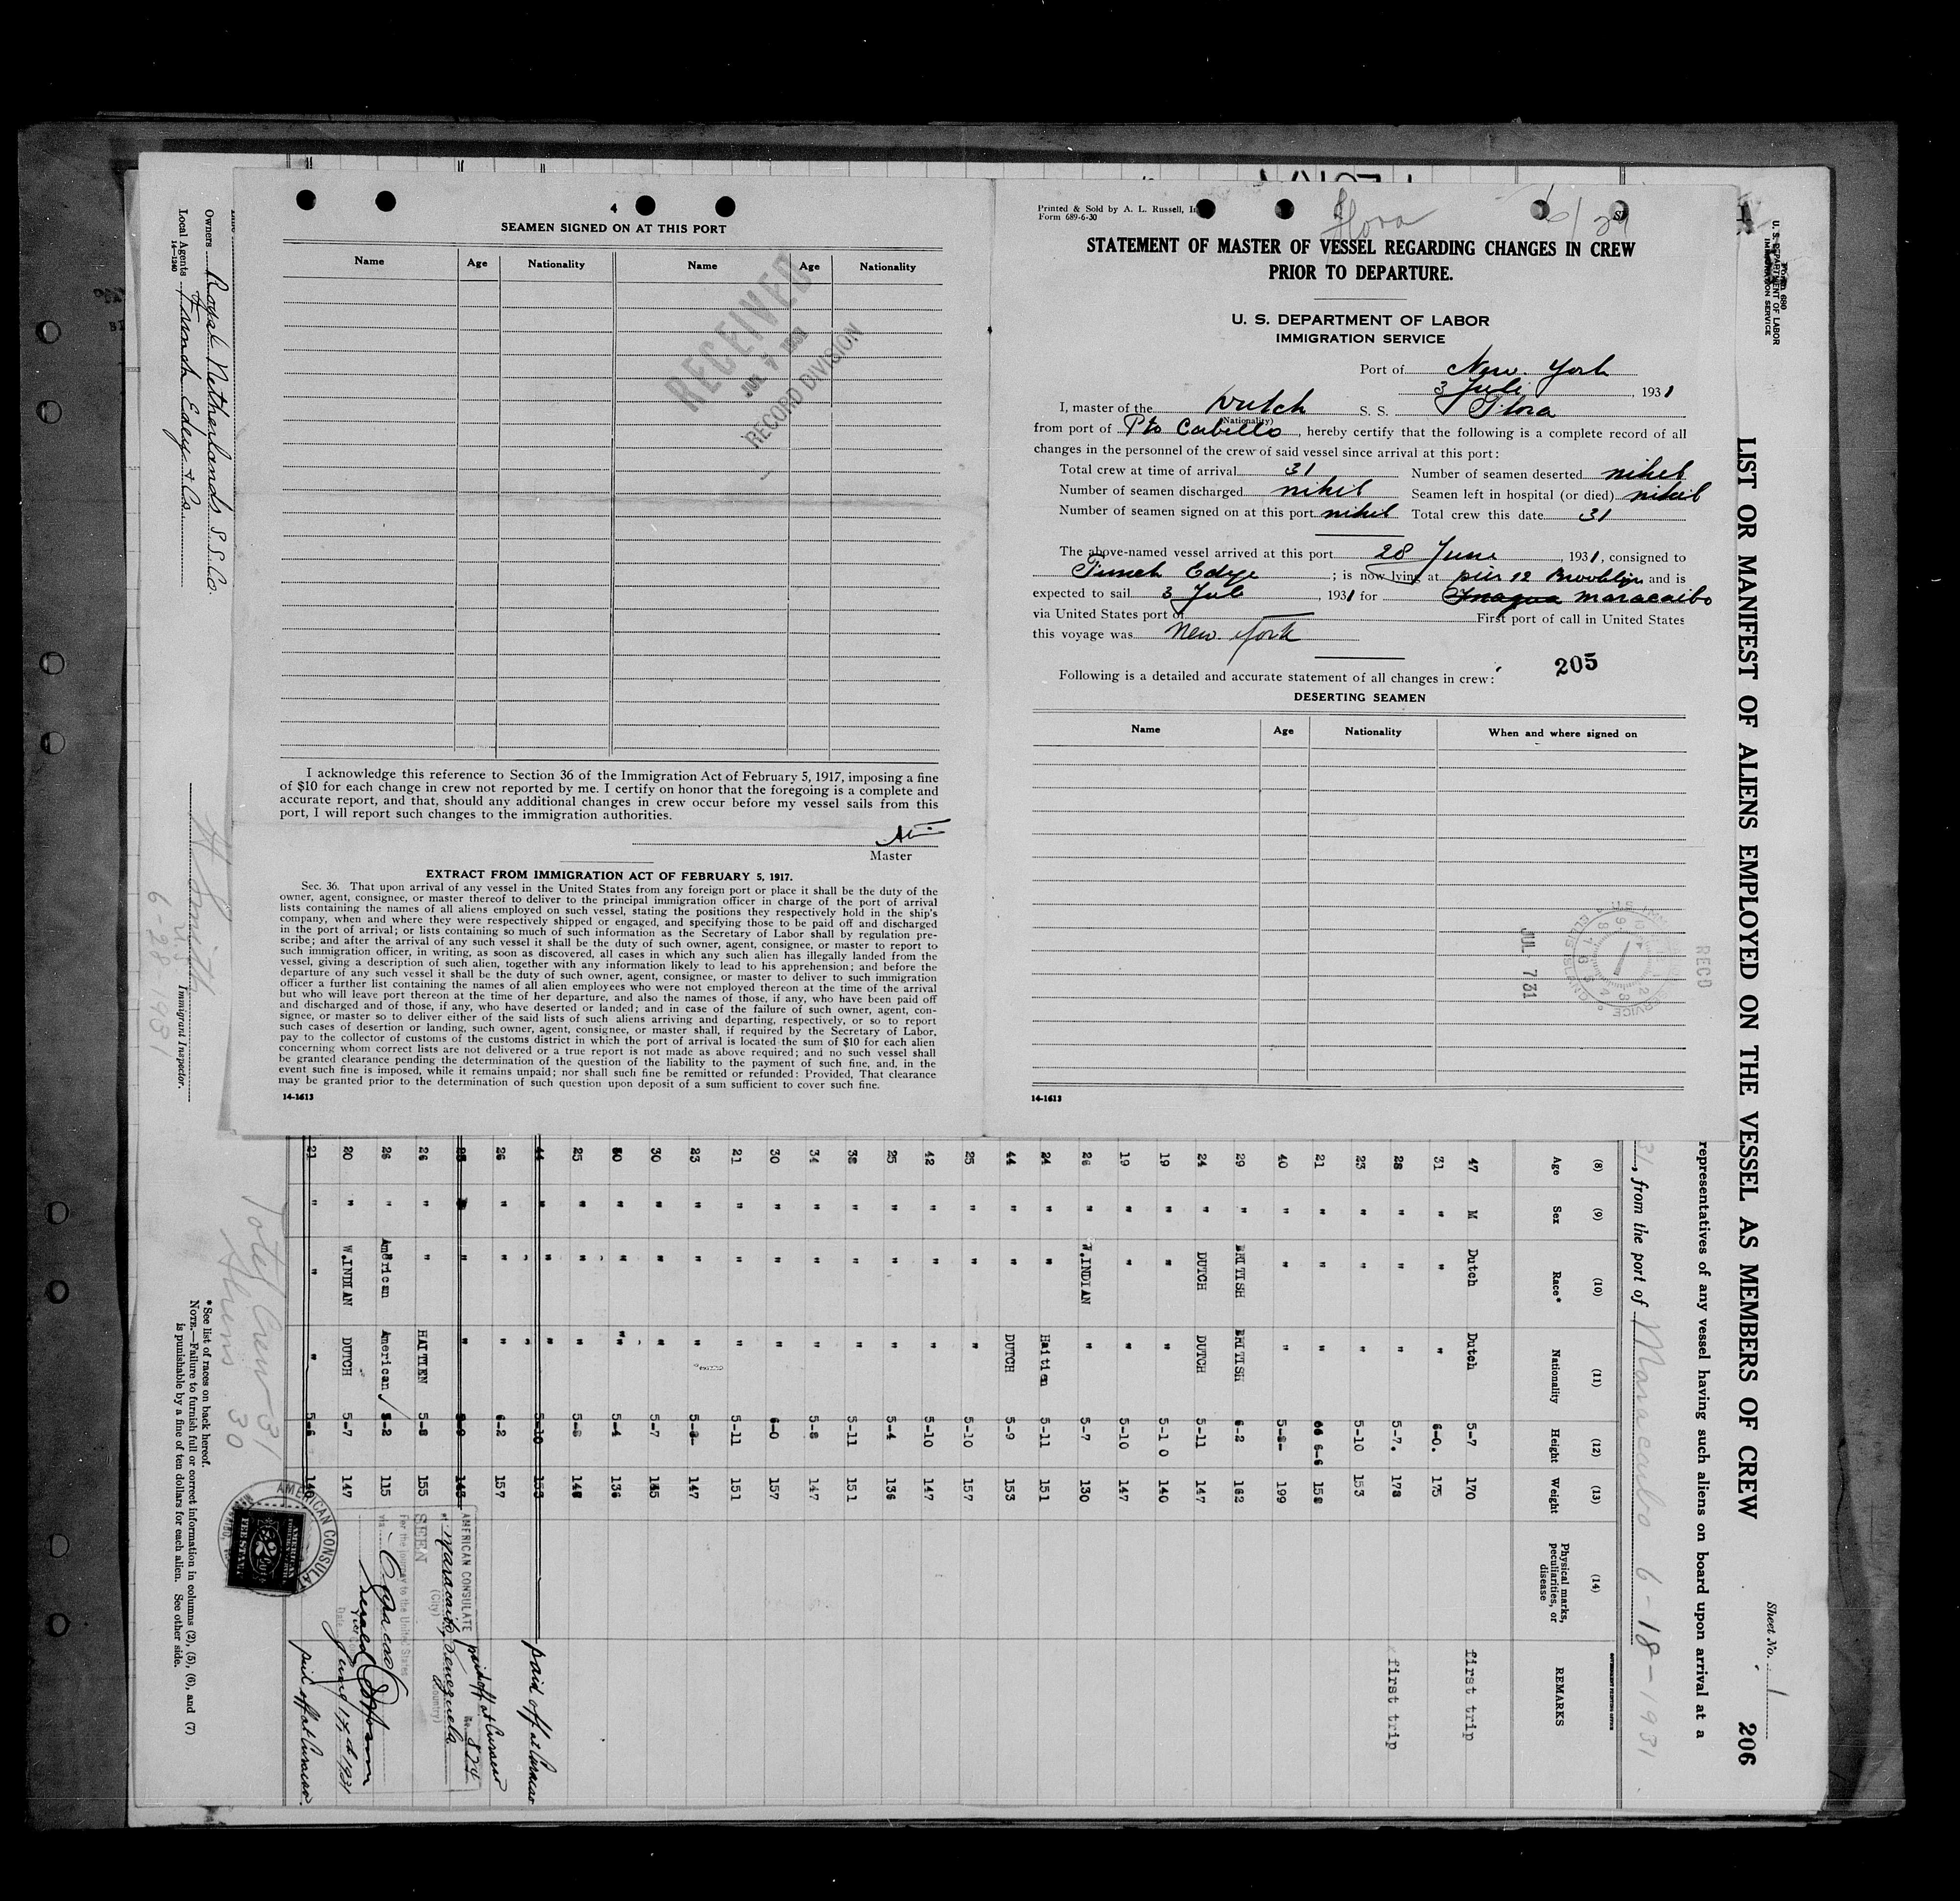 4
SEAMEN SIGNED ON AT THIS PORT
Name Age Nationality Name Age Nationality
RECEIVED
7 1931
RECORD DIVISION
I acknowledge this reference to Section 36 of the Immigration Act of February 5, 1917, imposing a fine
of $10 for each change in crew not reported by me. I certify on honor that the foregoing is a complete and
accurate report, and that, should any additional changes in crew occur before my vessel sails from this
port, I will report such changes to the immigration authorities.
Master
EXTRACT FROM IMMIGRATION ACT OF FEBRUARY 5, 1917.
Sec. 36. That upon arrival of any vessel in the United States from any foreign port or place it shall be the duty of the
owner, agent, consignee, or master thereof to deliver to the principal immigration officer in charge of the port of arrival
lists containing the names of all aliens employed on such vessel, stating the positions they respectively hold in the ship's
company, when and where they were respectively shipped or engaged, and specifying those to be paid off and discharged
in the port of arrival; or lists containing so much of such information as the Secretary of Labor shall by regulation pre-
scribe; and after the arrival of any such vessel it shall be the duty of such owner, agent, consignee, or master to report to
such immigration officer, in writing, as soon as discovered, all cases in which any such alien has illegally landed from the
vessel, giving a description of such alien, together with any information likely to lead to his apprehension; and before the
departure of any such vessel it shall be the duty of such owner, agent, consignee, or master to deliver to such immigration
officer a further list containing the names of all alien employees who were not employed thereon at the time of the arrival
but who will leave port thereon at the time of her departure, and also the names of those, if any, who have been paid off
and discharged and of those, if any, who have deserted or landed; and in case of the failure of such owner, agent, con-
signee, or master so to deliver either of the said lists of such aliens arriving and departing, respectively, or so to report
such cases of desertion or landing, such owner, agent, consignee, or master shall, if required by the Secretary of Labor,
pay to the collector of customs of the customs district in which the port of arrival is located the sum of $10 for each alien
concerning whom correct lists are not delivered or a true report is not made as above required; and no such vessel shall
be granted clearance pending the determination of the question of the liability to the payment of such fine, and, in the
event such fine is imposed, while it remains unpaid; nor shall such fine be remitted or refunded: Provided, That clearance
may be granted prior to the determination of such question upon deposit of a sum sufficient to cover such fine.
14-1613
Printed & Sold by A. L. Russell,
Form 689-6-30
Flora
6/29
STATEMENT OF MASTER OF VESSEL REGARDING CHANGES IN CREW
PRIOR TO DEPARTURE.
U. S. DEPARTMENT OF LABOR
IMMIGRATION SERVICE
Port of New York
3 Juli, 1931
I, master of the Dutch S. S. Flora
(Nationality)
from port of Pto Cabello, hereby certify that the following is a complete record of all
changes in the personnel of the crew of said vessel since arrival at this port:
Total crew at time of arrival 31 Number of seamen deserted nihil
Number of seamen discharged nihil Seamen left in hospital (or died) nihil
Number of seamen signed on at this port nihil Total crew this date 31
The above-named vessel arrived at this port 28 June, 1931, consigned to
Funch Edye; is now lying at pier 12 Brooklijn and is
expected to sail 3 Jul, 1931 for Inagua maracaibo
via United States port of First port of call in United States
this voyage was New York
205
Following is a detailed and accurate statement of all changes in crew:
DESERTING SEAMEN
Name Age Nationality When and where signed on
JUL 7 31
RECD
14-1613
Form 680
U. S. DEPARTMENT OF LABOR
IMMIGRATION SERVICE
Sheet No. 1
206
LIST OR MANIFEST OF ALIENS EMPLOYED ON THE VESSEL AS MEMBERS OF CREW
representatives of any vessel having such aliens on board upon arrival at a
31, from the port of Maracaibo 6-18-1931.
(8) (9) (10) (11) (12) (13) (14)
Age Sex Race* Nationality Height Weight Physical marks, peculiarities, or disease REMARKS
47 M Dutch Dutch 5-7 170 first trip
31 " " " 6-0. 175
28 " " " 5-7. 178 first trip
23 " " " 5-10 153
21 " " " 6-6 158
40 " " " 5-8- 199
29 " BRITISH BRITISH 6-2 162
24 " DUTCH DUTCH 5-11 147
19 " " " 5-10 140
19 " " " 5-10 147
26 " W.INDIAN " 5-7 130
24 " " Haitien 5-11 151
44 " " DUTCH 5-9 153
25 " " " 5-10 157
42 " " " 5-10 147
25 " " " 5-4 136
38 " " " 5-11 151
34 " " " 5-8 147
30 " " " 6-0 157
21 " " " 5-11 151
23 " " " 5-8- 147
30 " " " 5-7 145
30 " " " 5-4 136
25 " " " 5-8 148
44 " " " 5-10 153 paid off at Curacao
26 " " " 6-2 157
" " " paid off at Curacao
26 " " HAITIEN 5-8 155
26 " American American 5-2 115
20 " W.INDIAN DUTCH 5-7 147
21 " " " 5-6 140 paid off at Curacao.
AMERICAN CONSULATE
at Maracaibo, Venezuela
(City) (Country)
SEEN No. 824
For the journey to the United States
via Curacao
Date June 17, 1931
AMERICAN CONSULATE
AMERICAN
FEE STAMP
Total Crew 31
Aliens 30
*See list of races on back hereof.
NOTE.—Failure to furnish full or correct information in columns (2), (5), (6), and (7)
is punishable by a fine of ten dollars for each alien. See other side.
Owners Royal Netherlands S.S. Co.
Local Agents Funch Edye & Co.
14-1240
Smith
Immigrant Inspector.
6-28-1931